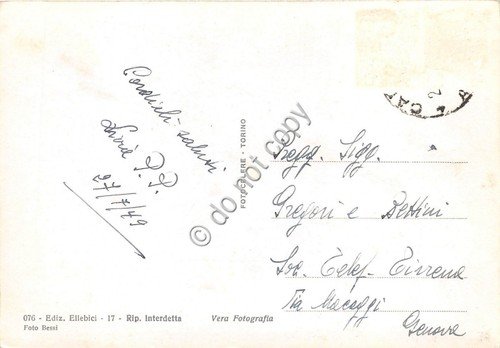 Cordiali saluti
27/7/49
076 - Ediz. Ellebici - 17 - Rip. Interdetta
Foto Bessi
Vera Fotografia
FOTOCELERE - TORINO
do not copy
CA
2
Spegg. Sigg.
Gregori e Dettini
Soc. Telef. Tirrena
Via Macaggi
Genova